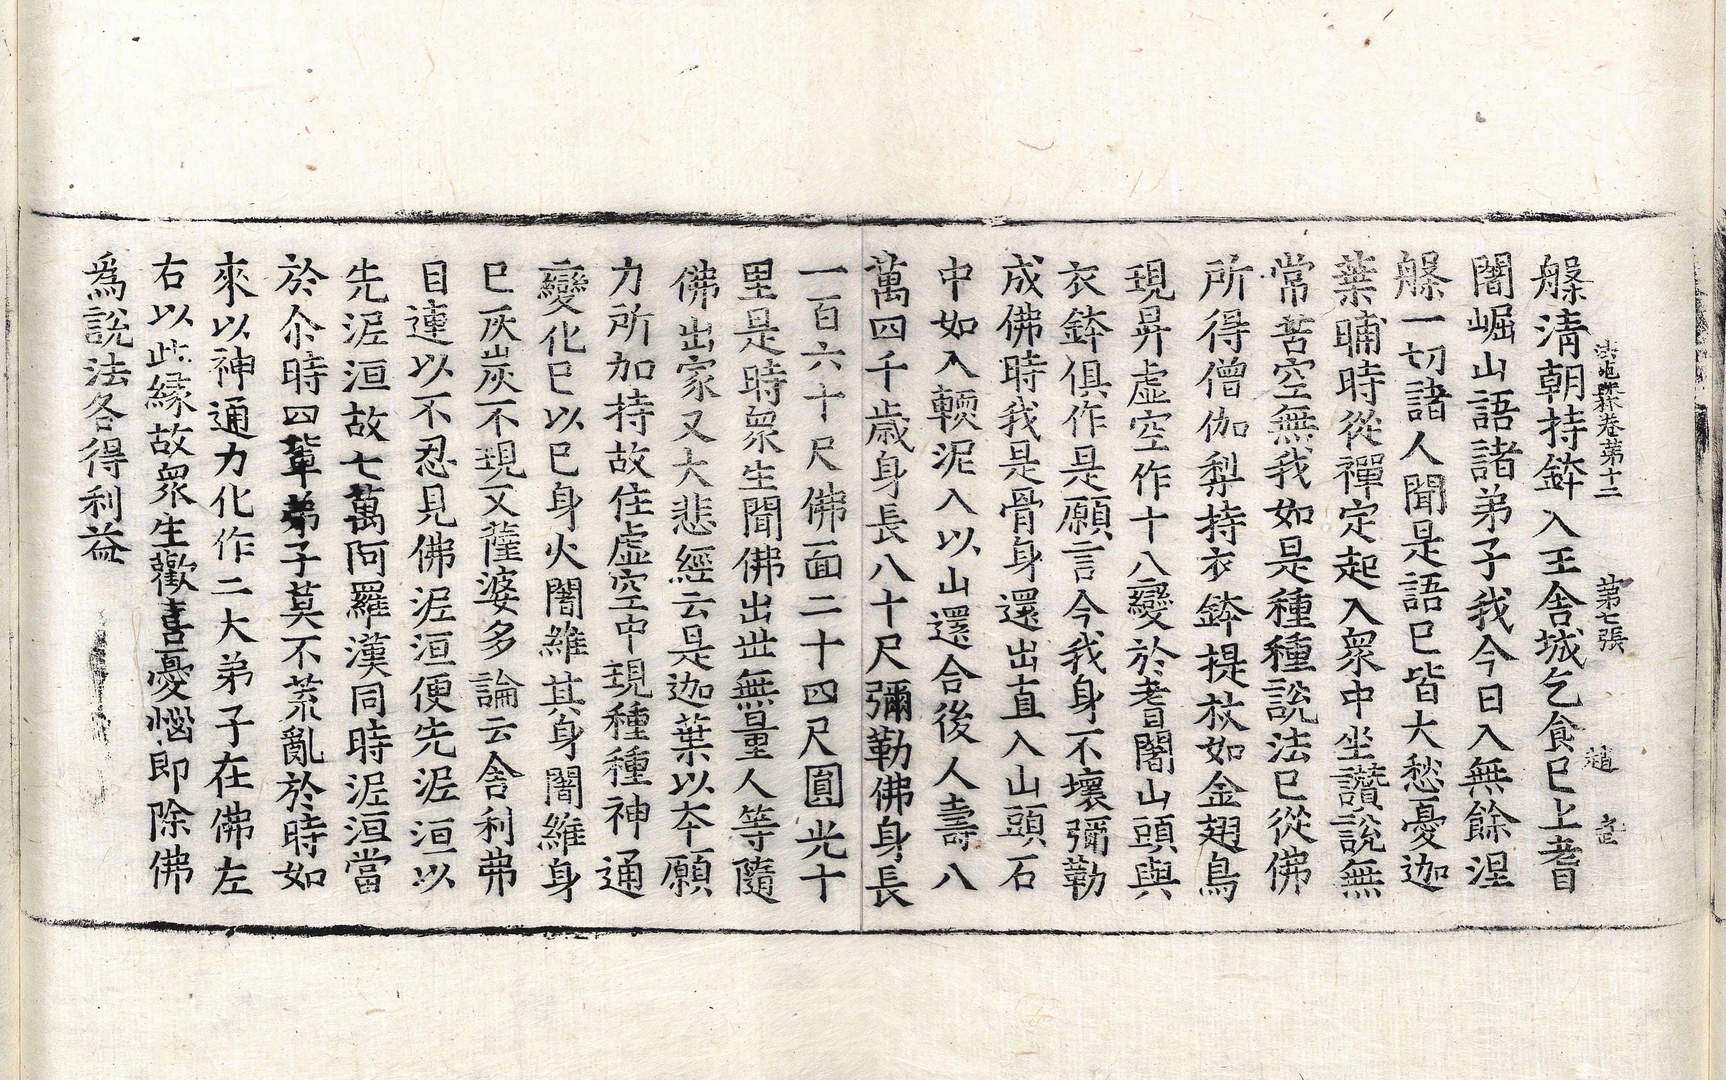 法苑珠林卷第十二 第七張
槃淸朝持鉢入王舍城乞食已上耆
闍崛山語諸弟子我今日入無餘涅
槃一切諸人聞是語已皆大愁憂迦
葉晡時從禪定起入衆中坐讚說無
常苦空無我如是種種說法已從佛
所得僧伽梨持衣鉢提杖如金翅鳥
現昇虛空作十八變於耆闍山頭與
衣鉢俱作是願言今我身不壞彌勒
成佛時我是骨身還出直入山頭石
中如入輭泥入以山還合後人壽八
萬四千歲身長八十尺彌勒佛身長
一百六十尺佛面二十四尺圓光十
里是時衆生聞佛出世無量人等隨
佛出家又大悲經云是迦葉以本願
力所加持故住虛空中現種種神通
變化已以已身火闍維其身闍維身
已灰炭不現又薩婆多論云舍利弗
目連以不忍見佛泥洹便先泥洹以
先泥洹故七萬阿羅漢同時泥洹當
於尒時四輩弟子莫不荒亂於時如
來以神通力化作二大弟子在佛左
右以此緣故衆生歡喜憂惱即除佛
爲說法各得利益